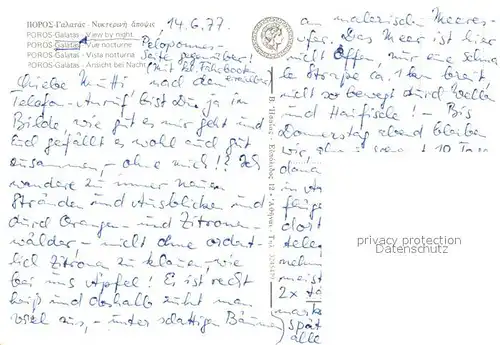 ΠΟΡΟΣ-Γαλατάς - Νυκτερινή άποψις
POROS-Galatas - View by night
POROS-Galatas - Vue nocturne
POROS-Galatas - Vista notturna
POROS-Galatas - Ansicht bei Nacht
14.6.77.
Peloponnes-
Seite gegenüber!
(Mit kl. Fährbooten
erreichbar)
Liebe Mutti, nach dem
Telefon-Anruf bist Du ja im
Bilde, wie gut es mir geht und
Euch gefällt es wohl auch gut
zusammen, - ohne mich!! Ich
wandere zu immer neuen
Stränden und Ausblicken und
durch Orangen- und Zitronen-
wälder, - nicht ohne ordent-
lich Zitronen zu klauen, wie
bei uns Äpfel! Es ist recht
heiß und deshalb zieht man
viel aus, - unter schattigen Bäumen
am malerischen Meeres-
ufer. Das Meer ist hier
nicht offen, nur eine schma
le Straße ca. 1 km breit
nicht so bewegt durch Wellen
und Haifische! - Bis
Donnerstag abend bleiben
wir, also 10 Tage
dana
in At
flüge
dost
tele
nehm
meist
2x ta
maske
spät
alle
privacy protection
Datenschutz